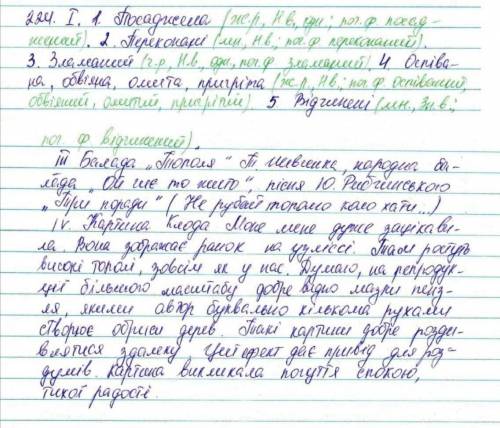 224. I. 1. Посаджена (ж.р., Н.в., одн.; поч. ф. посад-
жений). 2. Переконані (мн., Н.в.; поч. ф. переконаний).
3. Зламаний (ч.р., Н.в., одн., поч. ф. зламаний). 4. Оспіва-
на, обвіяна, омита, пригріта (ж.р., Н.в.; поч. ф. оспіваний,
обвіяний, омитий, пригрітий). 5 Відчинені (мн., Зн.в.;
поч. ф. відчинений).
III Балада „Тополя" Т. Шевченка, народна ба-
лада „Ой чиє то жито", пісня Ю. Рибчинського
„Три поради" (Не рубай тополю коло хати...)
IV. Картина Клода Моне мене дуже зацікави-
ла. Вона зображає ранок на узліссі. Там ростуть
високі тополі, зовсім як у нас. Думаю, на репродук-
ції більшого масштабу добре видно мазки пенз-
ля, якими автор буквально кількома рухами
створює обриси дерев. Такі картини добре розди-
влятися здалеку. Цей ефект дає привід для роз-
думів. Картина викликала почуття спокою,
тихої радості.